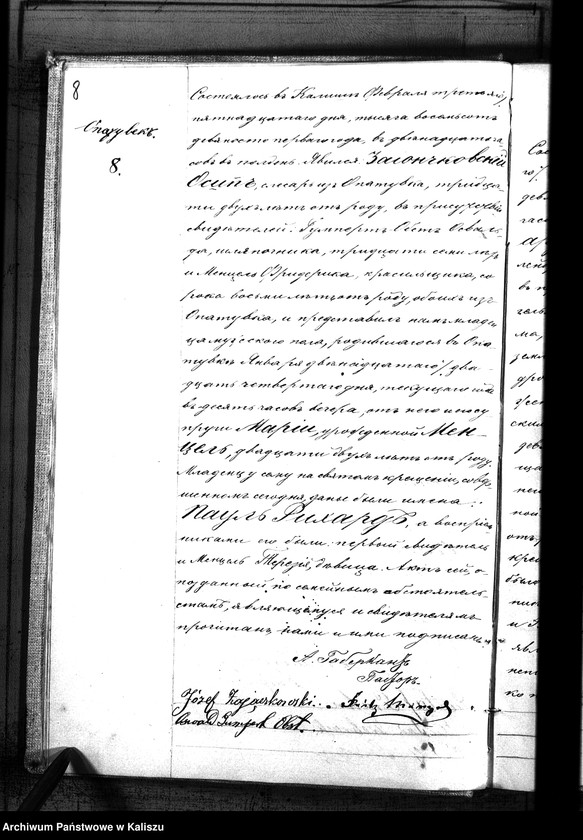 8
Опатувекъ.
8.
Состоялось въ Калишѣ Февраля третьяго/
пятнадцатаго дня, тысяча восемьсотъ
девяносто перваго года, въ двѣнадцать ча-
совъ въ полдень. Явился Заіончковскій
Осипъ, слесарь изъ Опатувка, тридца-
ти двухъ лѣтъ отъ роду, въ присутствіи
свидѣтелей: Обстъ
шляпочника, тридцати семи лѣтъ
и Менцеля Фридерика, красильщика, со-
рока восьми лѣтъ отъ роду, обоихъ изъ
Опатувка, и представилъ намъ младен-
ца мужескаго пола, родившагося въ Опа-
тувкѣ Января двѣнадцатаго/два-
дцать четвертаго дня, текущаго года
въ десять часовъ вечера, отъ него и его су-
пруги Маріи, урожденной Мен-
цель, двадцати двухъ лѣтъ отъ роду.
Младенцу сему на святомъ крещеніи, совер-
шенномъ сегодня, даны были имена:
Пауль Рихардъ, а воспріем-
никами его были: первый свидѣтель
и Менцель Терезія, дѣвица. Актъ сей, о-
позданный, по семейнымъ обстоятель-
ствамъ, являющемуся и свидѣтелямъ
прочитанъ, нами и ими подписанъ
А. Габеркантъ
Пасторъ.
Józef Zajączkowski. Fritz Menzel
Obst.
Archiwum Państwowe w Kaliszu